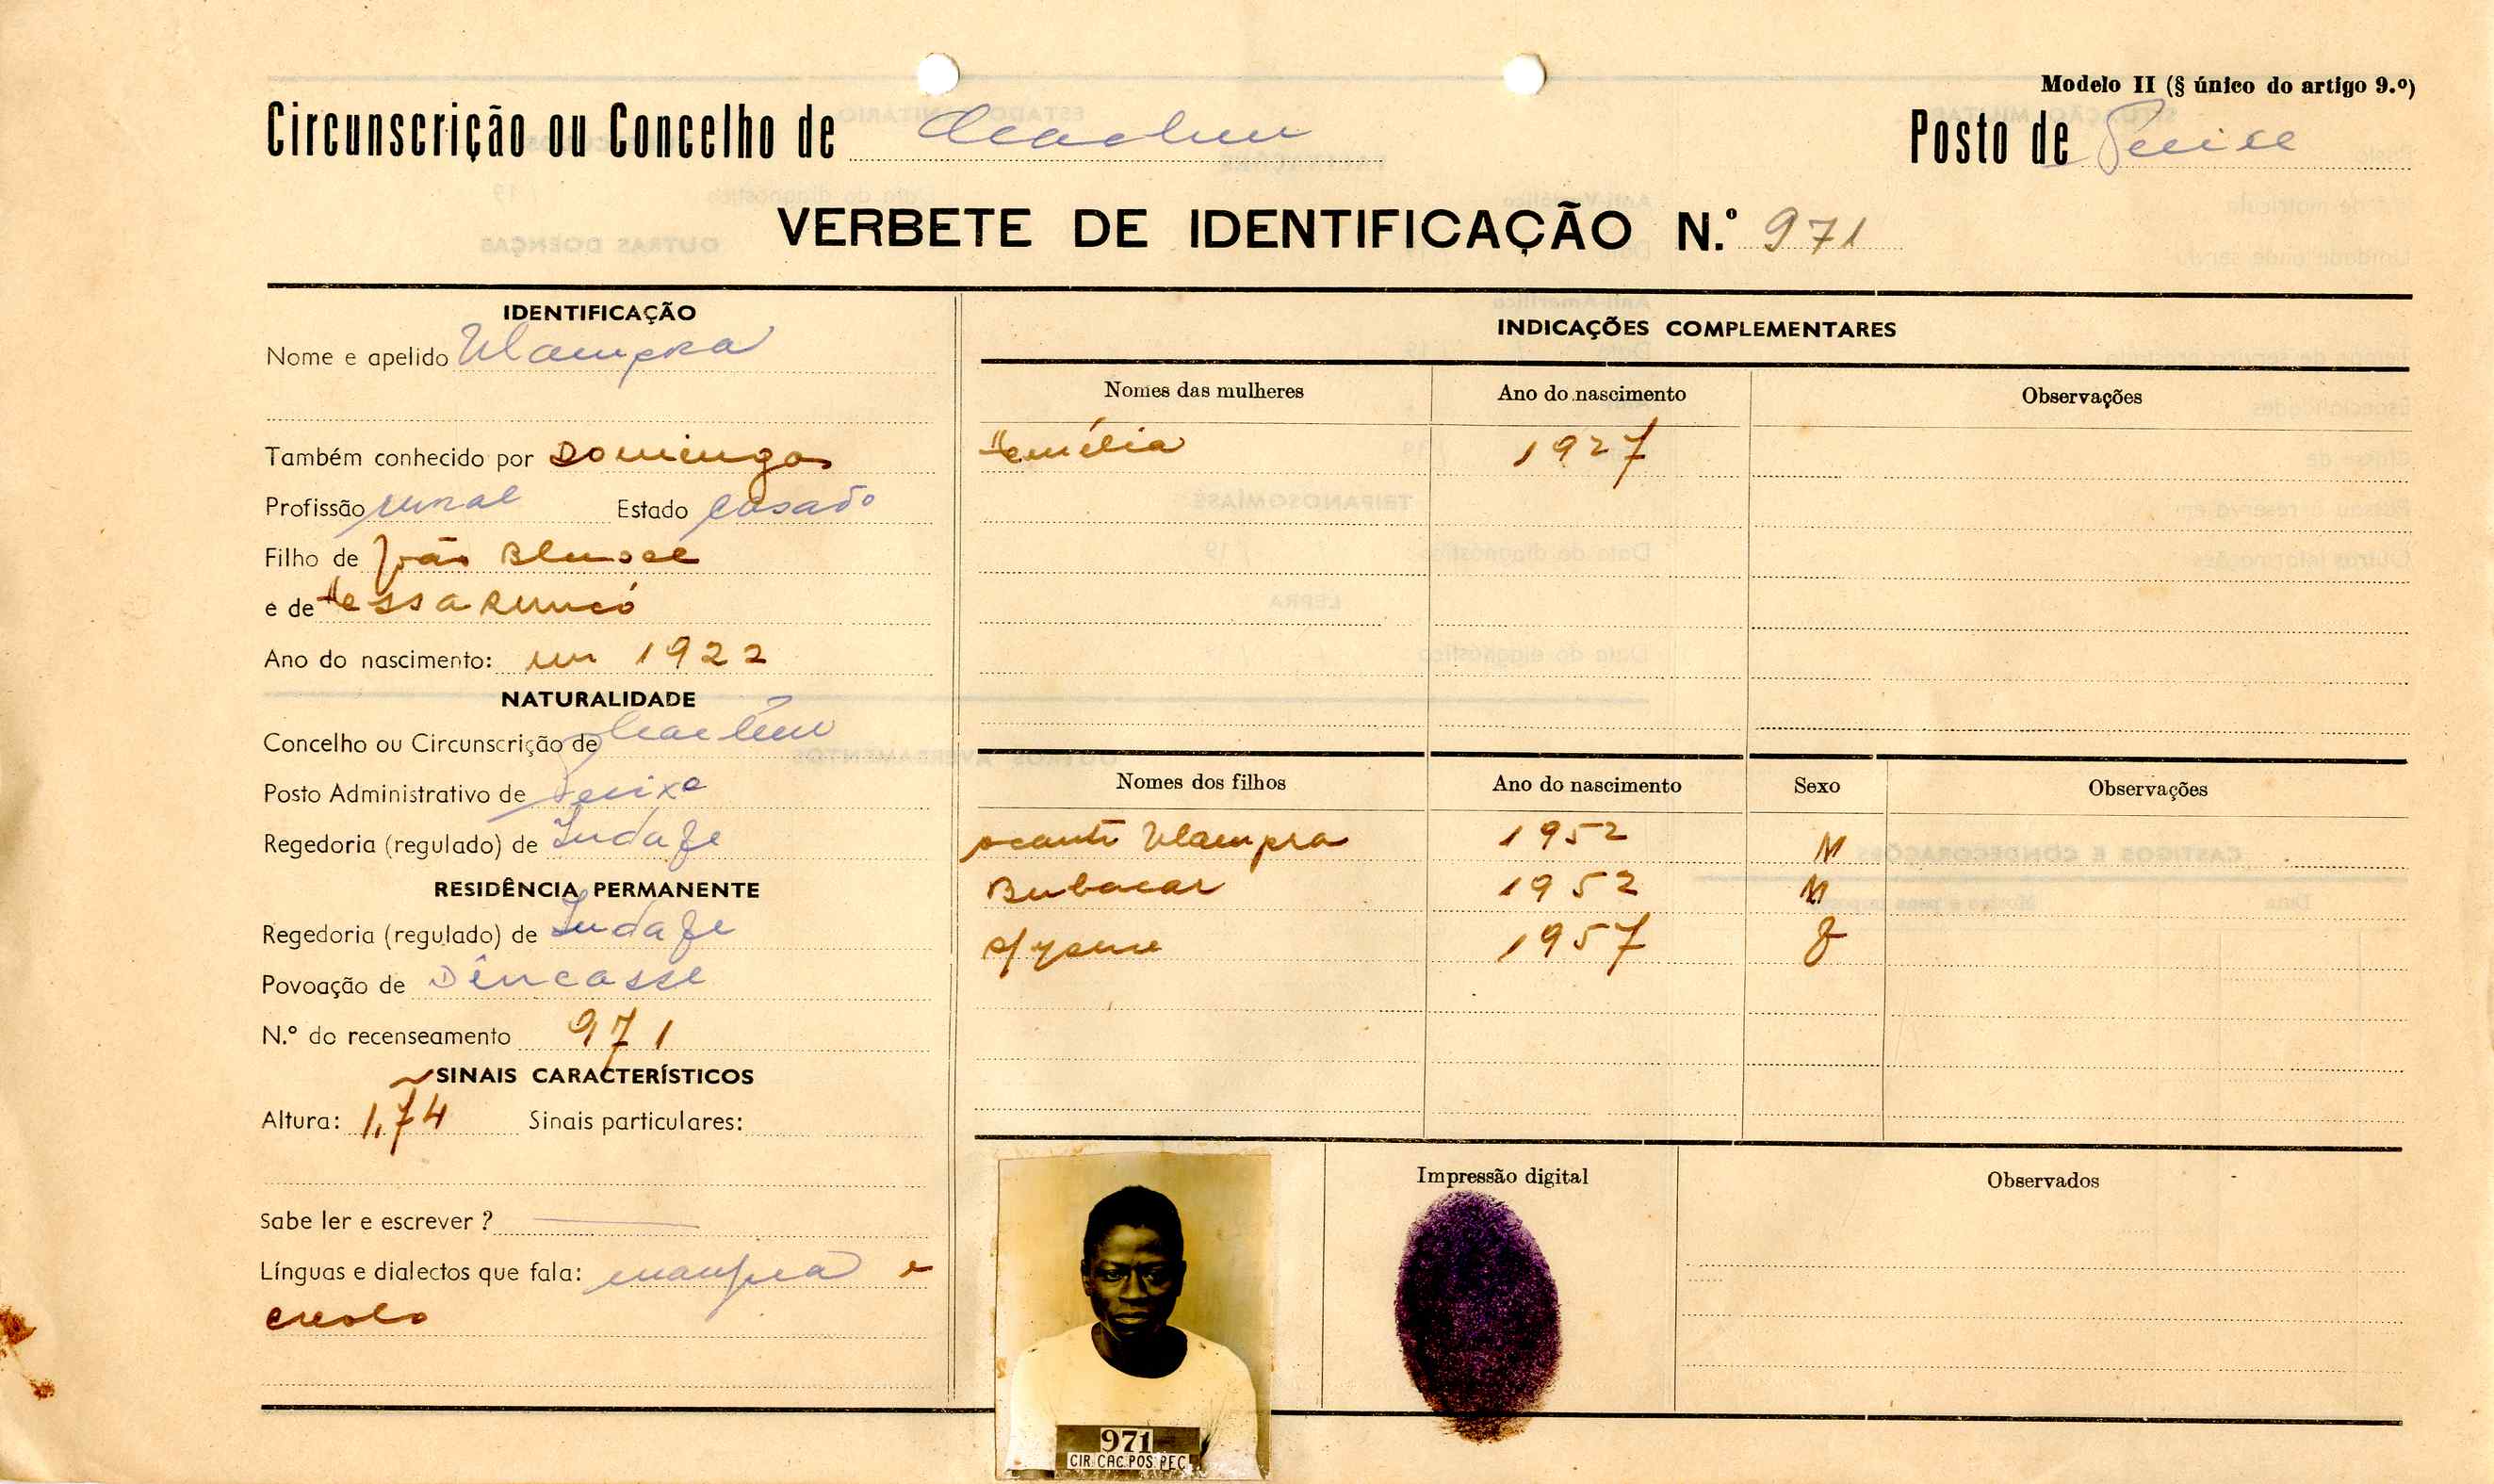 Modelo II (§ único do artigo 9.º)
Circunscrição ou Concelho de Cacheu
Posto de Pecixe
VERBETE DE IDENTIFICAÇÃO N.º 971
IDENTIFICAÇÃO
Nome e apelido Ulampra
Também conhecido por Domingos
Profissão rural Estado casado
Filho de João
e de
Ano do nascimento: em 1922
NATURALIDADE
Concelho ou Circunscrição de Cacheu
Posto Administrativo de Pecixe
Regedoria (regulado) de Indafe
RESIDÊNCIA PERMANENTE
Regedoria (regulado) de Indafe
Povoação de Dêncasse
N.º do recenseamento 971
SINAIS CARACTERÍSTICOS
Altura: 1,74 Sinais particulares:
Sabe ler e escrever ?
Línguas e dialectos que fala: e
creolo
INDICAÇÕES COMPLEMENTARES
Nomes das mulheres Ano do nascimento Observações
1927
Nomes dos filhos Ano do nascimento Sexo Observações
Ulampra 1952 M
Bubacar 1952 M
1957 F
Impressão digital
Observados
971
CIR.CAC.POS.PEC